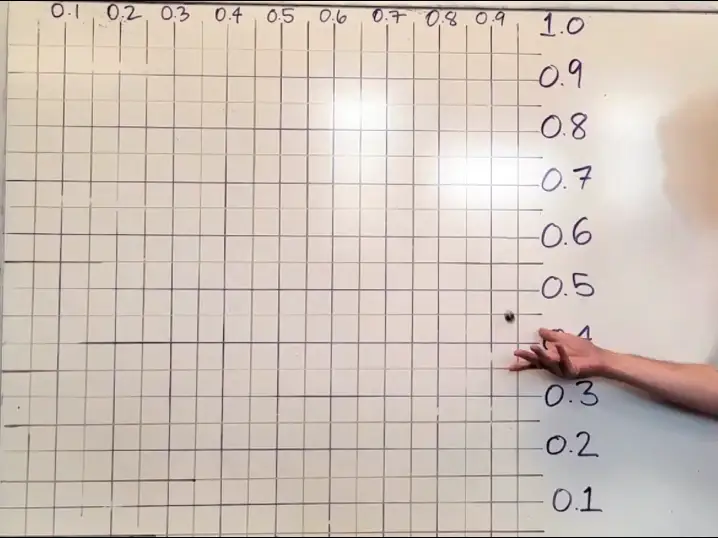 0.1 0.2 0.3 0.4 0.5 0.6 0.7 0.8 0.9 1.0
0.9
0.8
0.7
0.6
0.5
0.3
0.2
0.1